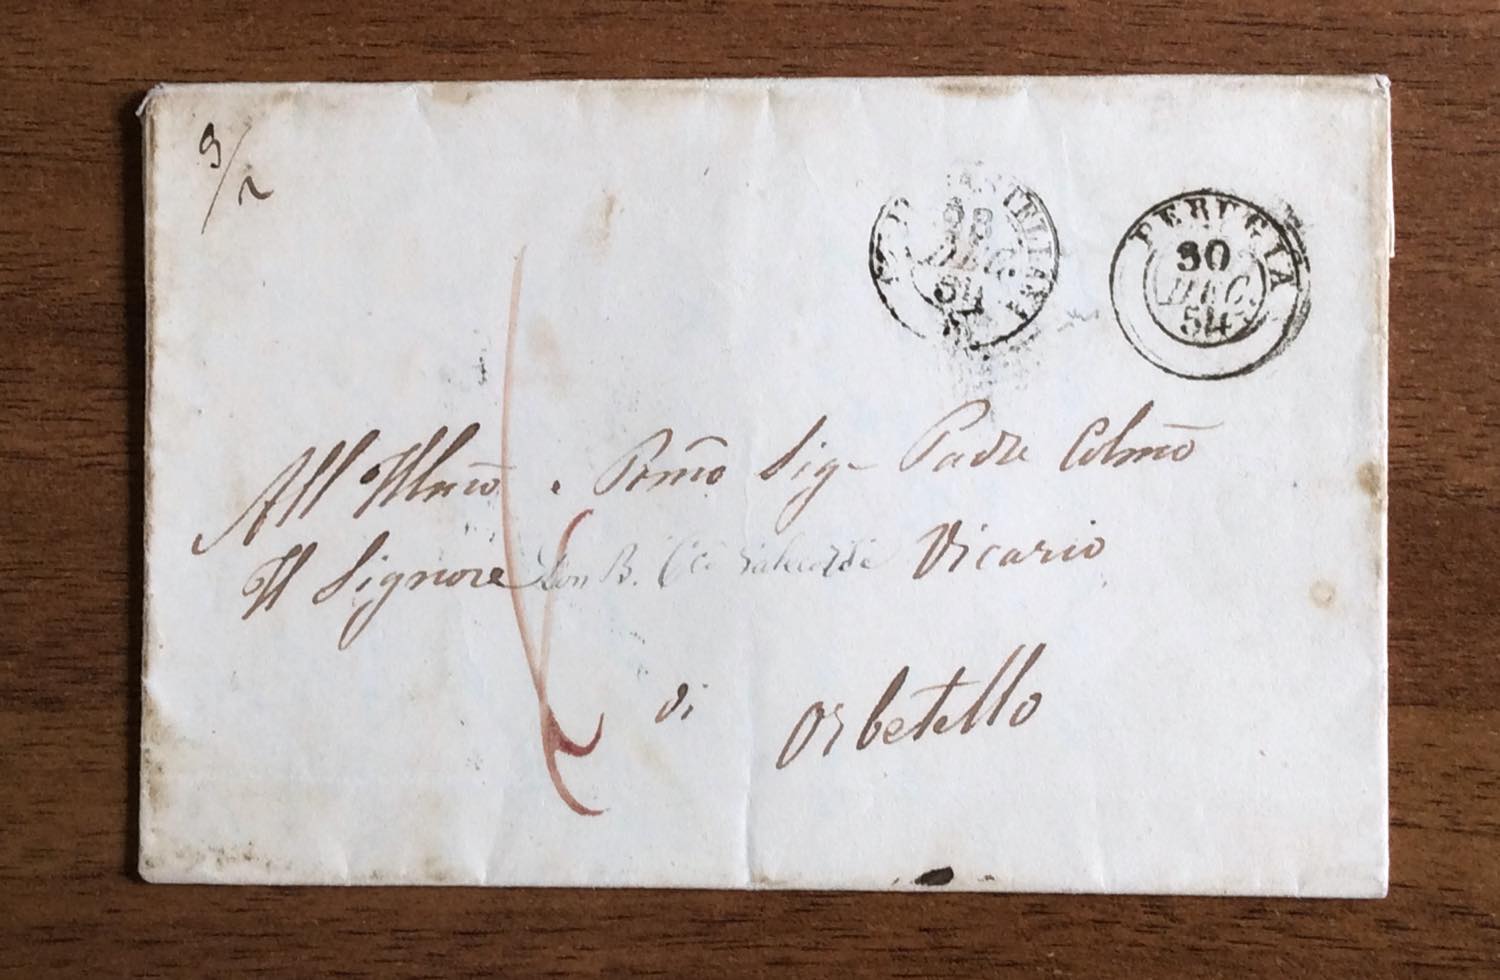 9/2
28
DEC.
54
PERUGIA
30
DEC.
54
All' Illmo e Prmo Sig Padre Colmo
Il Signore Don B. Vicario
di Orbetello